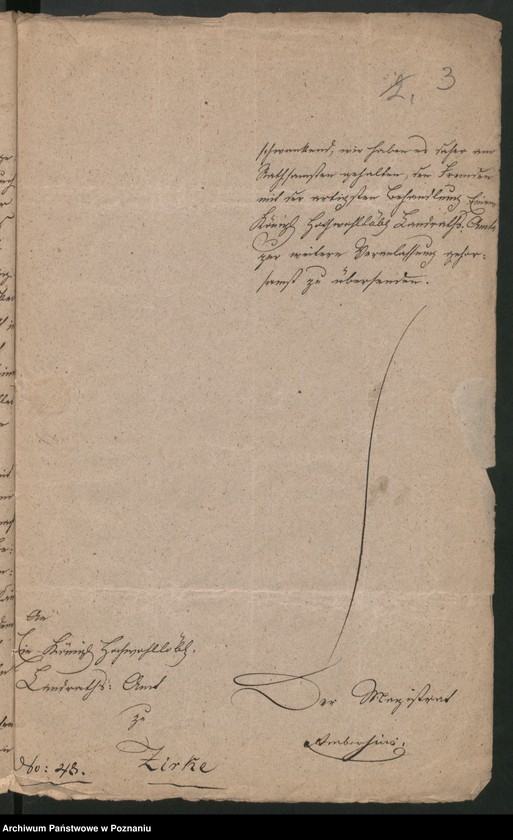 2. 3
schwankend, wir haben es daher am
Rathsamsten gehalten, den Fremden
mit der artigsten Behandlung Einem
Königl Hochwohllöbl Landraths. Amte,
zur weitern Veranlassung gehor-
samst zu übersenden.
An
Ein Königl Hochwohllöbl.
Landraths: Amt
zu
Zirke
No: 43.
Der Magistrat
Archiwum Państwowe w Poznaniu